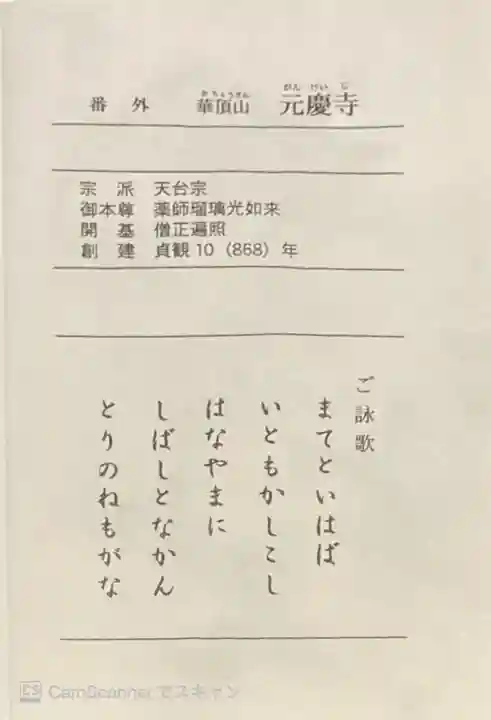 番外 華頂山 元慶寺
かちょうざん がんけいじ
宗派 天台宗
御本尊 薬師瑠璃光如来
開基 僧正遍照
創建 貞観10（868）年
ご詠歌
まてといはば
いともかしこし
はなやまに
しばしとなかん
とりのねもがな
CS CamScanner でスキャン